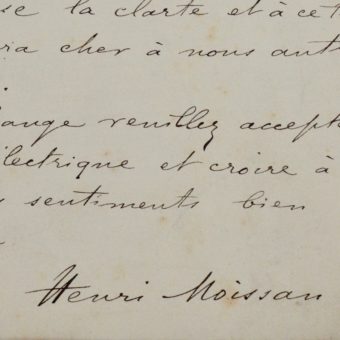 se la clarté et à cet
ra cher à nous autr
ange veuillez accept
électrique et croire à
sentiments bien
Henri Moissan